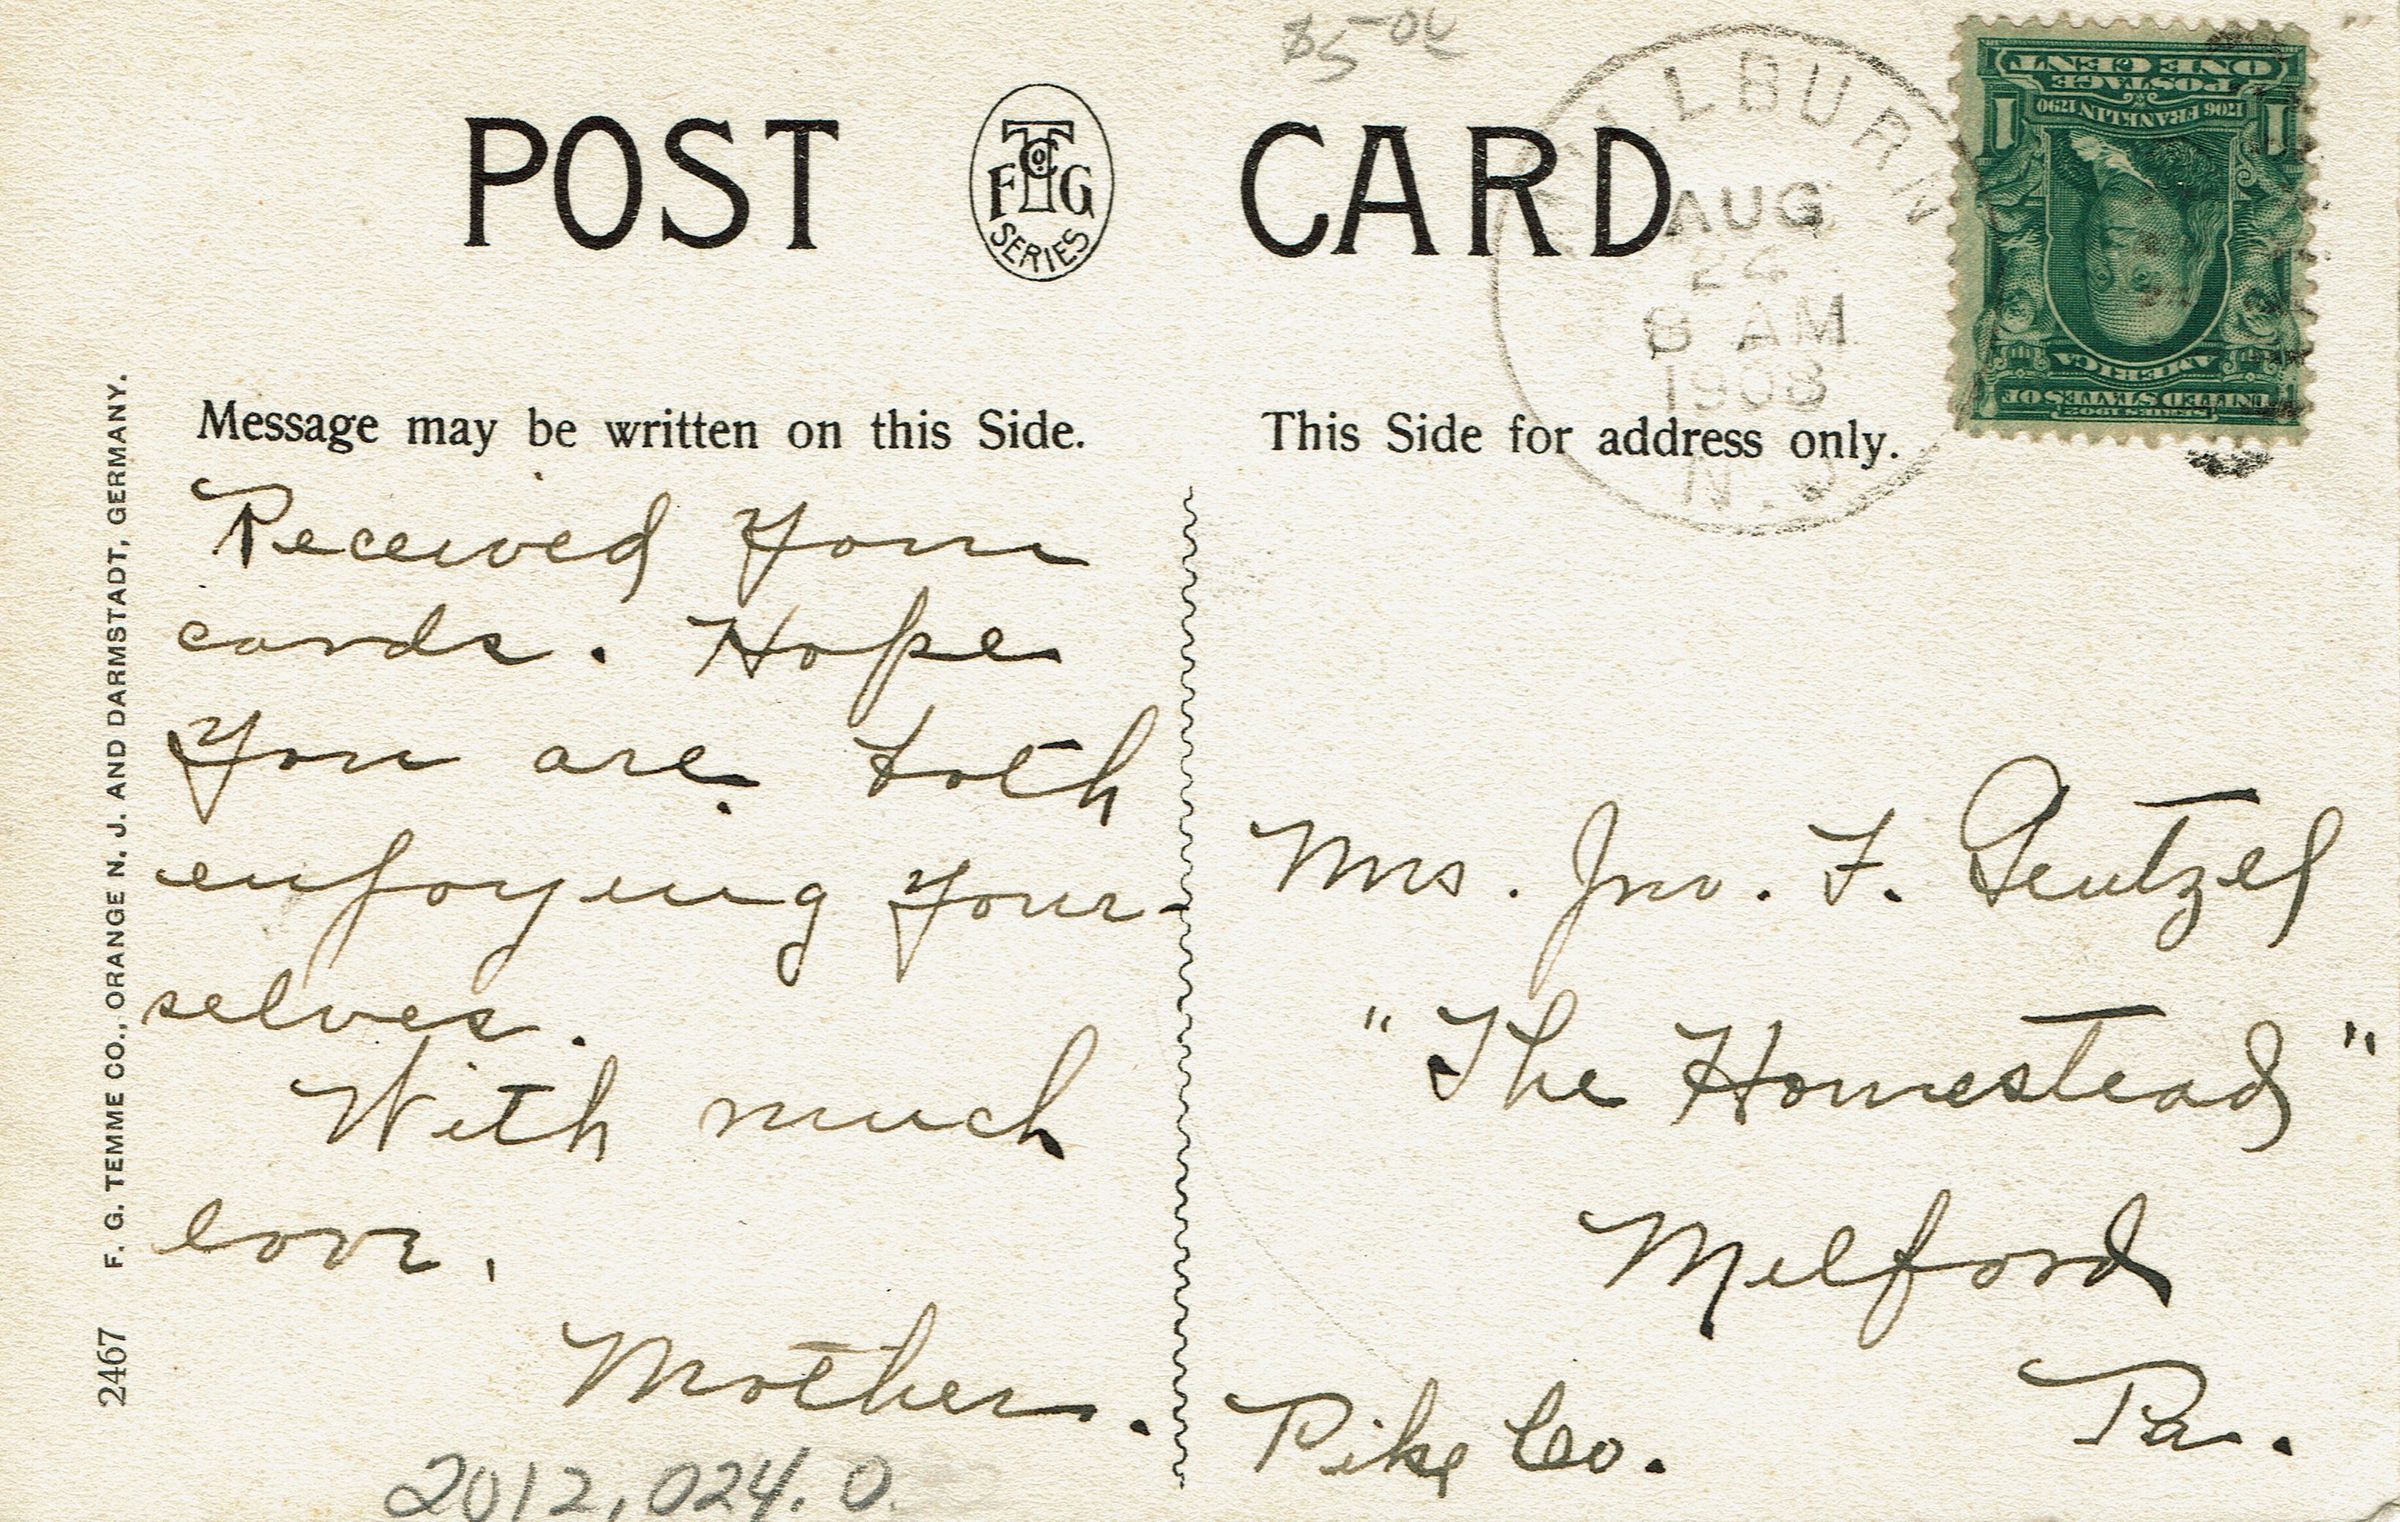 $5-00
POST CARD
F T Co. G
SERIES
MILLBURN
AUG
24
8 AM
1908
N.J.
ONE CENT
POSTAGE
1706 FRANKLIN 1790
1 1
SERIES 1902
UNITED STATES OF
AMERICA
Message may be written on this Side.
This Side for address only.
Received your
cards. Hope
you are both
enjoying your-
selves.
With much
love,
Mother.
Mrs. Jno. F. Gentzel
"The Homestead"
Milford
Pa.
Pike Co.
2467 F. G. TEMME CO., ORANGE N. J. AND DARMSTADT, GERMANY.
2012,024.0